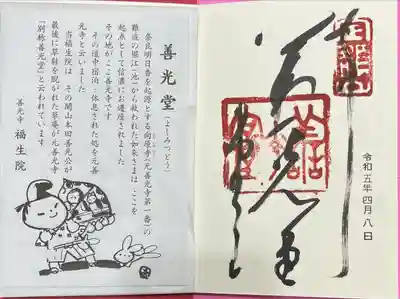 善光堂
令和五年四月八日
善光堂(よしみつどう)
奈良明日香を起源とする向原寺(元善光寺第一番)の
難波の堀江(池)から救われた如来さまは、ここを
起点として信濃にお遷座されました
その地がここ善光寺です
その道中宿泊・休息された処を元善
光寺と云いました
当福生院は、その開山本田善光公が
最後に草鞋を脱がれた草庵が元善光寺
『別称善光堂』と云われています
善光寺 福生院